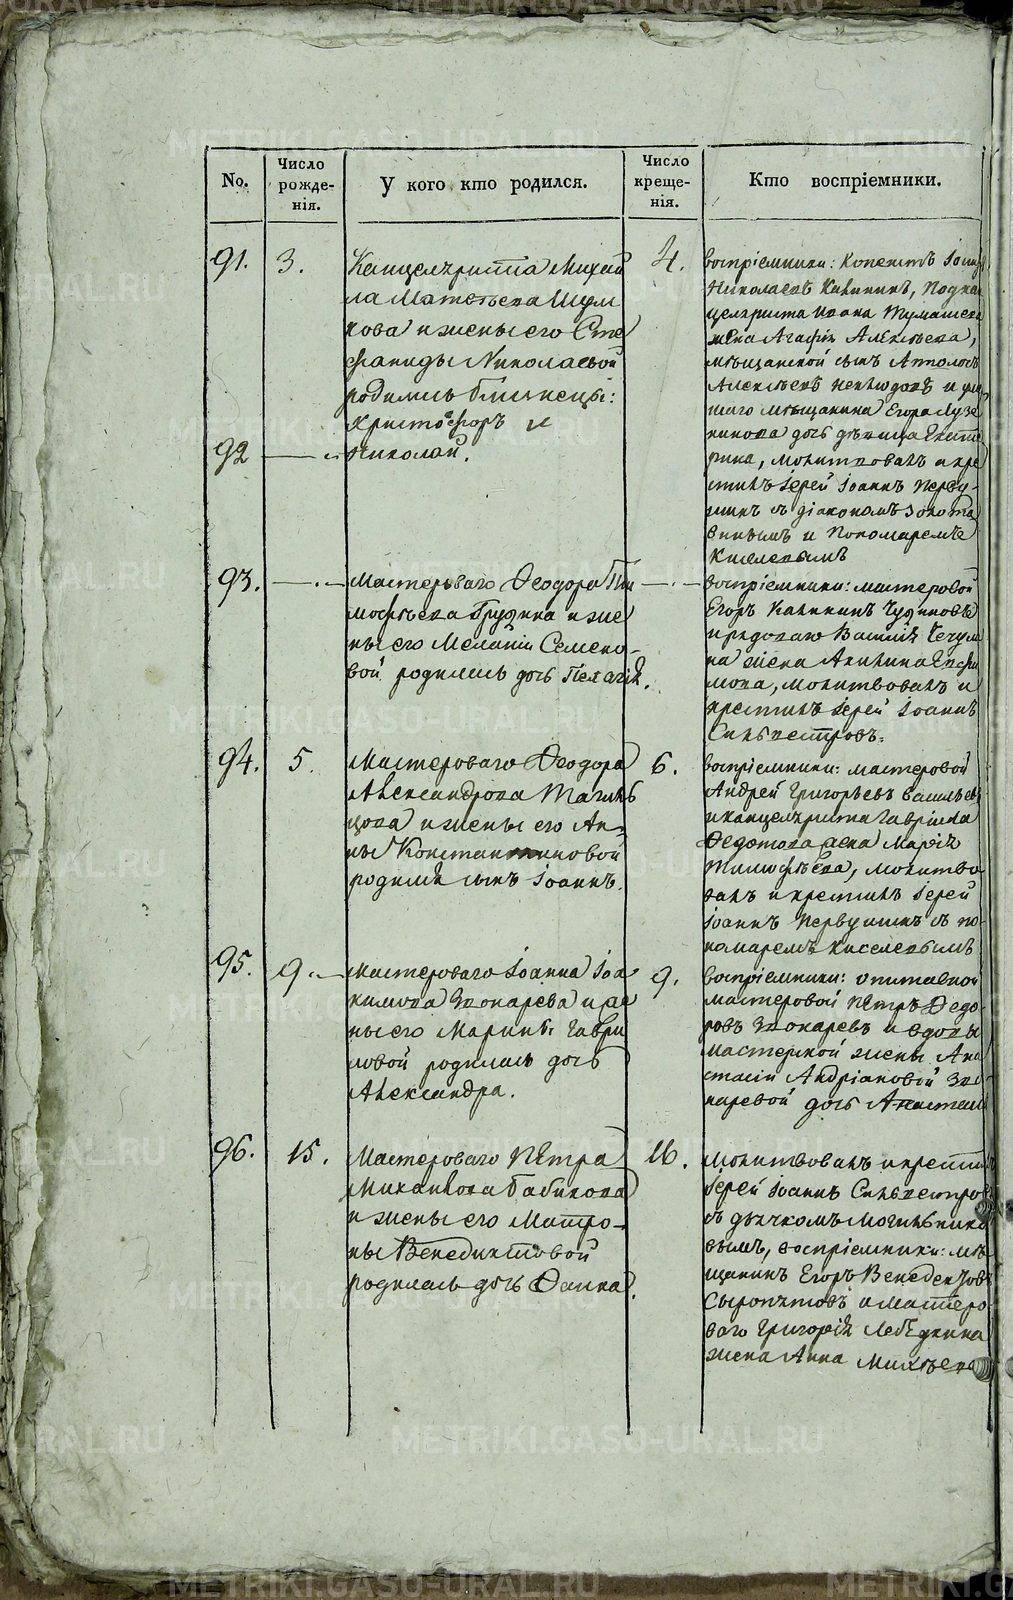 No.
Число рожде-нія.
У кого кто родился.
Число креще-нія.
Кто воспріемники.
91.
3.
Канцеляриста Михай
ла Матвѣева Шум
кова и жены его Сте
фаниды Николаевой
родились близнецы:
Христофоръ и
92
Николай.
4.
воспріемники:
Николаевъ Калининъ, Подкан
целяриста Ивана Тумашева
жена Агафія Алексѣева,
мѣщанской сынъ Апполосъ
Алексѣевъ
мѣщанина Егора Лузе
нинова дочь дѣвица Екате
рина, молитвовалъ и кре
стилъ Іерей Іоаннъ Перву-
шинъ съ діакономъ Золота
винымъ и Пономаремъ
Киселевымъ
93.
Мастероваго Ѳеодора Ти
моѳѣева Грудина и же
ны его Меланіи Семено-
вой родилась дочь Пелагія.
воспріемники: мастеровой
Егоръ Калининъ Чудиновъ
и рядоваго Василія
на жена Акилина Евфи
мова, молитвовалъ и
крестилъ Іерей Іоаннъ
Сильвестровъ.
94.
5.
Мастероваго Ѳеодора
Александрова Тагиль
цова и жены его Ан-
ны Константиновой
родился сынъ Іоаннъ.
6.
воспріемники: мастеровой
Андрей Григорьевъ Васильевъ
и канцеляриста Гавріила
Ѳедотова жена Марія
Тимоѳѣева, молитво
валъ и крестилъ Іерей
Іоаннъ Первушинъ съ по
номаремъ Киселевымъ
95.
9.
Мастероваго Іоанна Іоа
кимова Токарева и же
ны его Марины Гаври
ловой родилась дочь
Александра.
9.
воспріемники: отставной
мастеровой Петръ Ѳедо
ровъ Токаревъ и вдовы
мастерской жены Ана
стасіи Андріановой То
каревой дочь Анастасія
96.
15.
Мастероваго Петра
Михайлова Бабинова
и жены его Матро-
ны Венедиктовой
родилась дочь Фаина.
16.
Молитвовалъ и крестилъ
Іерей Іоаннъ Сильвестровъ
съ дьячкомъ Могильнико
вымъ, воспріемники: мѣ
щанинъ Егоръ Венедиктовъ
Сыропятовъ и Мастеро
ваго Григорія Лебедкина
жена Анна Михѣева
METRIKI.GASO-URAL.RU